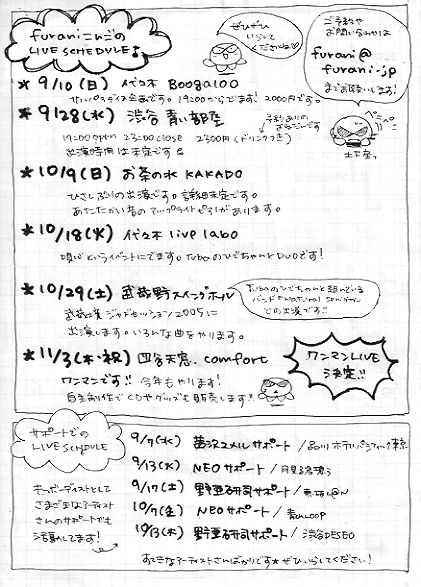 furaniこんごの
LIVE SCHEDULE♪
ぜひぜひ
いらして
くださいね♡
ご予約や
お問い合わせは
furani@
furani.jp
までお願いします!
★ 9/10(日) 代々木 Boogaloo
サルパラダイス企画です。19:00からでます! 2000円です。
★ 9/28(水) 渋谷 青い部屋
19:00 open 23:00 close 2300円(ドリンクつき)
出演時間は未定です
予約ありの
おねだんです
ペコペコ
土下座っ
★ 10/9(日) お茶の水 KAKADO
ひさしぶりの出演です。詳細未定です。
あたたかい音のアップライトピアノがあります。
★ 10/18(火) 代々木 live labo
唄心というイベントにでます。TubaのひでちゃんとDUOです!
★ 10/29(土) 武蔵野スイングホール
武蔵境 ジャズセッション2005に
出演します。いろんな曲をやります。
Tubaのひでちゃんと組んでいる
バンド"Natural
での出演です!!
★ 11/3(木・祝) 四谷天窓.comfort
ワンマンです!! 今年もやります!
自主制作でCDやグッズも販売します!!
ワンマンLIVE
決定!!
サポートでの
LIVE SCHEDULE
キーボーディストとして
さまざまなアーティスト
さんのサポートでも
活動してます!
9/7(水) 茜沢ユメルサポート / 品川 ホテルパシフィック東京
9/13(火) NEOサポート / 月見ル君想う
9/17(土) 野亜研司サポート /
10/7(金) NEOサポート / 青山LOOP
10/13(木) 野亜研司サポート / 渋谷DESEO
おすすめなアーティストさんばかりです★ぜひいらしてください!